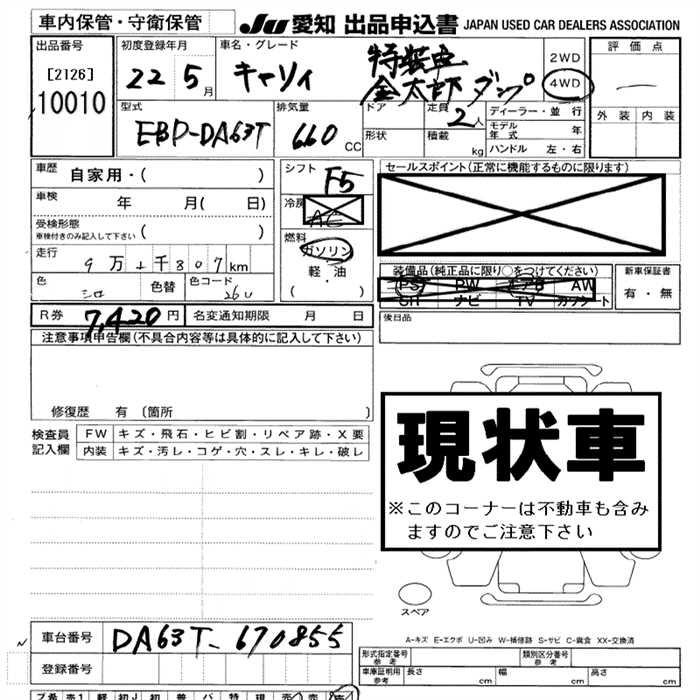 車内保管・守衛保管
JU 愛知 出品申込書 JAPAN USED CAR DEALERS ASSOCIATION
出品番号
[2126]
10010
初度登録年月
22 5月
車名・グレード
キャリィ 特装車
金太郎ダンプ
2WD
4WD
評価点
外装 内装
型式
EBD-DA63T
排気量
660 CC
ドア
形状
定員
2人
積載 kg
ディーラー・並行
モデル年式 年
ハンドル 左・右
車歴
自家用・( )
車検 年 月( 日)
受検形態
車検付きのみ記入して下さい ( )
走行
9万 千807km
色 シロ 色替 色コード 26U
シフト
F5
冷房
AC
燃料
ガソリン
軽・油
( ・ )
セールスポイント(正常に機能するものに限ります)
装備品(純正品に限り○をつけてください)
PS PW エアB AW
SR ナビ TV カワシート
新車保証書
有・無
R券 7,420円 名変通知期限 月 日
後日品
注意事項申告欄(不具合内容等は具体的に記入して下さい)
修復歴 有〔箇所 〕
検査員記入欄
FW キズ・飛石・ヒビ割・リペア跡・X要
内装 キズ・汚レ・コゲ・穴・スレ・キレ・破レ
現状車
※このコーナーは不動車も含み
ますのでご注意下さい
スペア
A-キズ E-エクボ U-凹み W-補修跡 S-サビ C-腐食 XX-交換済
車台番号 DA63T-670855
登録番号
形式指定番号 参考
類別区分番号 参考
車庫証明用 参考 長さ cm 幅 cm 高さ cm